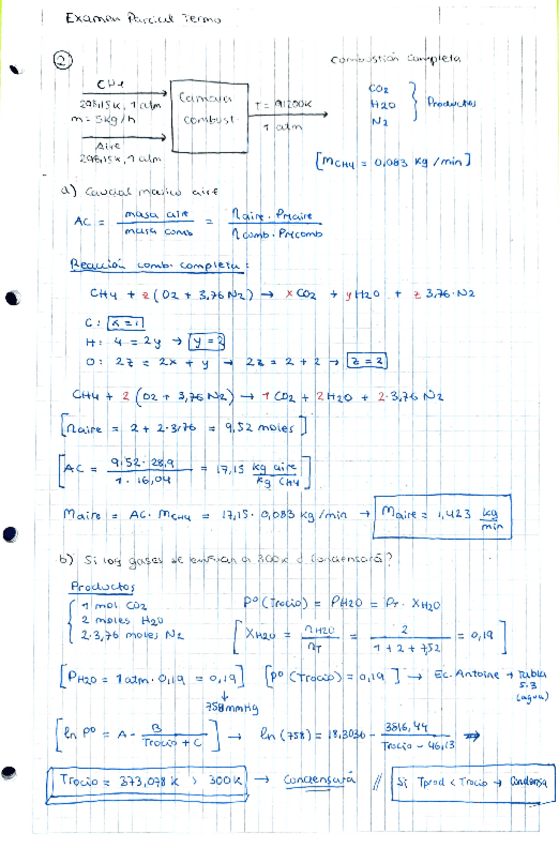 Examen Parcial Termo
2
Combustión Completa
CH4
298,15K, 1 atm
m = 5kg/h
Aire
298,15K, 1 atm
Camara
combust
T = 1200K
1 atm
CO2
H2O
N2
Productos
[mCH4 = 0,083 kg/min]
a) Caudal masico aire
AC = masa aire / masa comb = naire · PMaire / ncomb · PMcomb
Reacción comb. completa:
CH4 + z(O2 + 3,76 N2) → xCO2 + yH2O + z 3,76·N2
C: x = 1
H: 4 = 2y → y = 2
O: 2z = 2x + y → 2z = 2 + 2 → z = 2
CH4 + 2(O2 + 3,76 N2) → 1 CO2 + 2H2O + 2·3,76 N2
[naire = 2 + 2·3,76 = 9,52 moles]
[AC = 9,52·28,9 / 1·16,04 = 17,15 kg aire / kg CH4]
Maire = AC · MCH4 = 17,15 · 0,083 kg/min → Maire = 1,423 kg/min
b) Si los gases se enfrian a 300K ¿Condensará?
Productos
1 mol CO2
2 moles H2O
2·3,76 moles N2
Pº(Trocio) = PH2O = PT · XH2O
[XH2O = nH2O / nT = 2 / 1 + 2 + 7,52 = 0,19]
[PH2O = 1 atm · 0,19 = 0,19] [Pº(Trocio) = 0,19] → Ec. Antoine → Tabla 5.3 (agua)
↓
758 mmHg
[ln Pº = A - B / Trocio + C] → ln(758) = 18,3036 - 3816,44 / Trocio - 46,13 ⇒
Trocio = 373,078 K > 300K → Condensará // Si Tprod < Trocio → Condensa